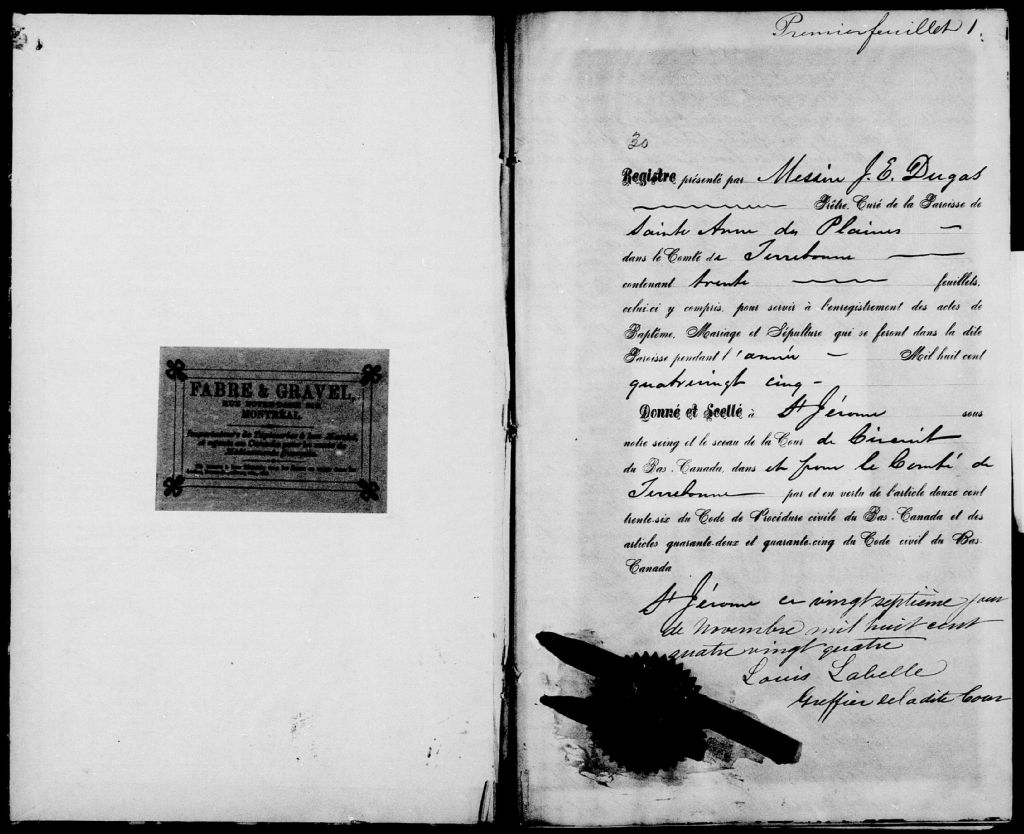 FABRE & GRAVEL,
RUE NOTRE-DAME
MONTRÉAL
Premier feuillet 1.
30
Registre présenté par Messire J. E. Dugas
Prêtre, Curé de la Paroisse de
Sainte Anne des Plaines
dans le Comté de Terrebonne
contenant trente feuillets,
celui-ci y compris, pour servir à l'enregistrement des actes de
Baptême, Mariage et Sépulture qui se feront dans la dite
Paroisse pendant l'année Mil huit cent
quatrevingt cinq -
Donné et Scellé à St Jérome sous
notre seing et le sceau de la Cour de Circuit
du Bas-Canada, dans et pour le Comté de
Terrebonne par et en vertu de l'article douze cent
trente-six du Code de Procédure civile du Bas-Canada et des
articles quarante-deux et quarante-cinq du Code civil du Bas-
Canada
St Jérome ce vingt septième jour
de Novembre mil huit cent
quatre vingt quatre
Louis Labelle
Greffier de la dite Cour